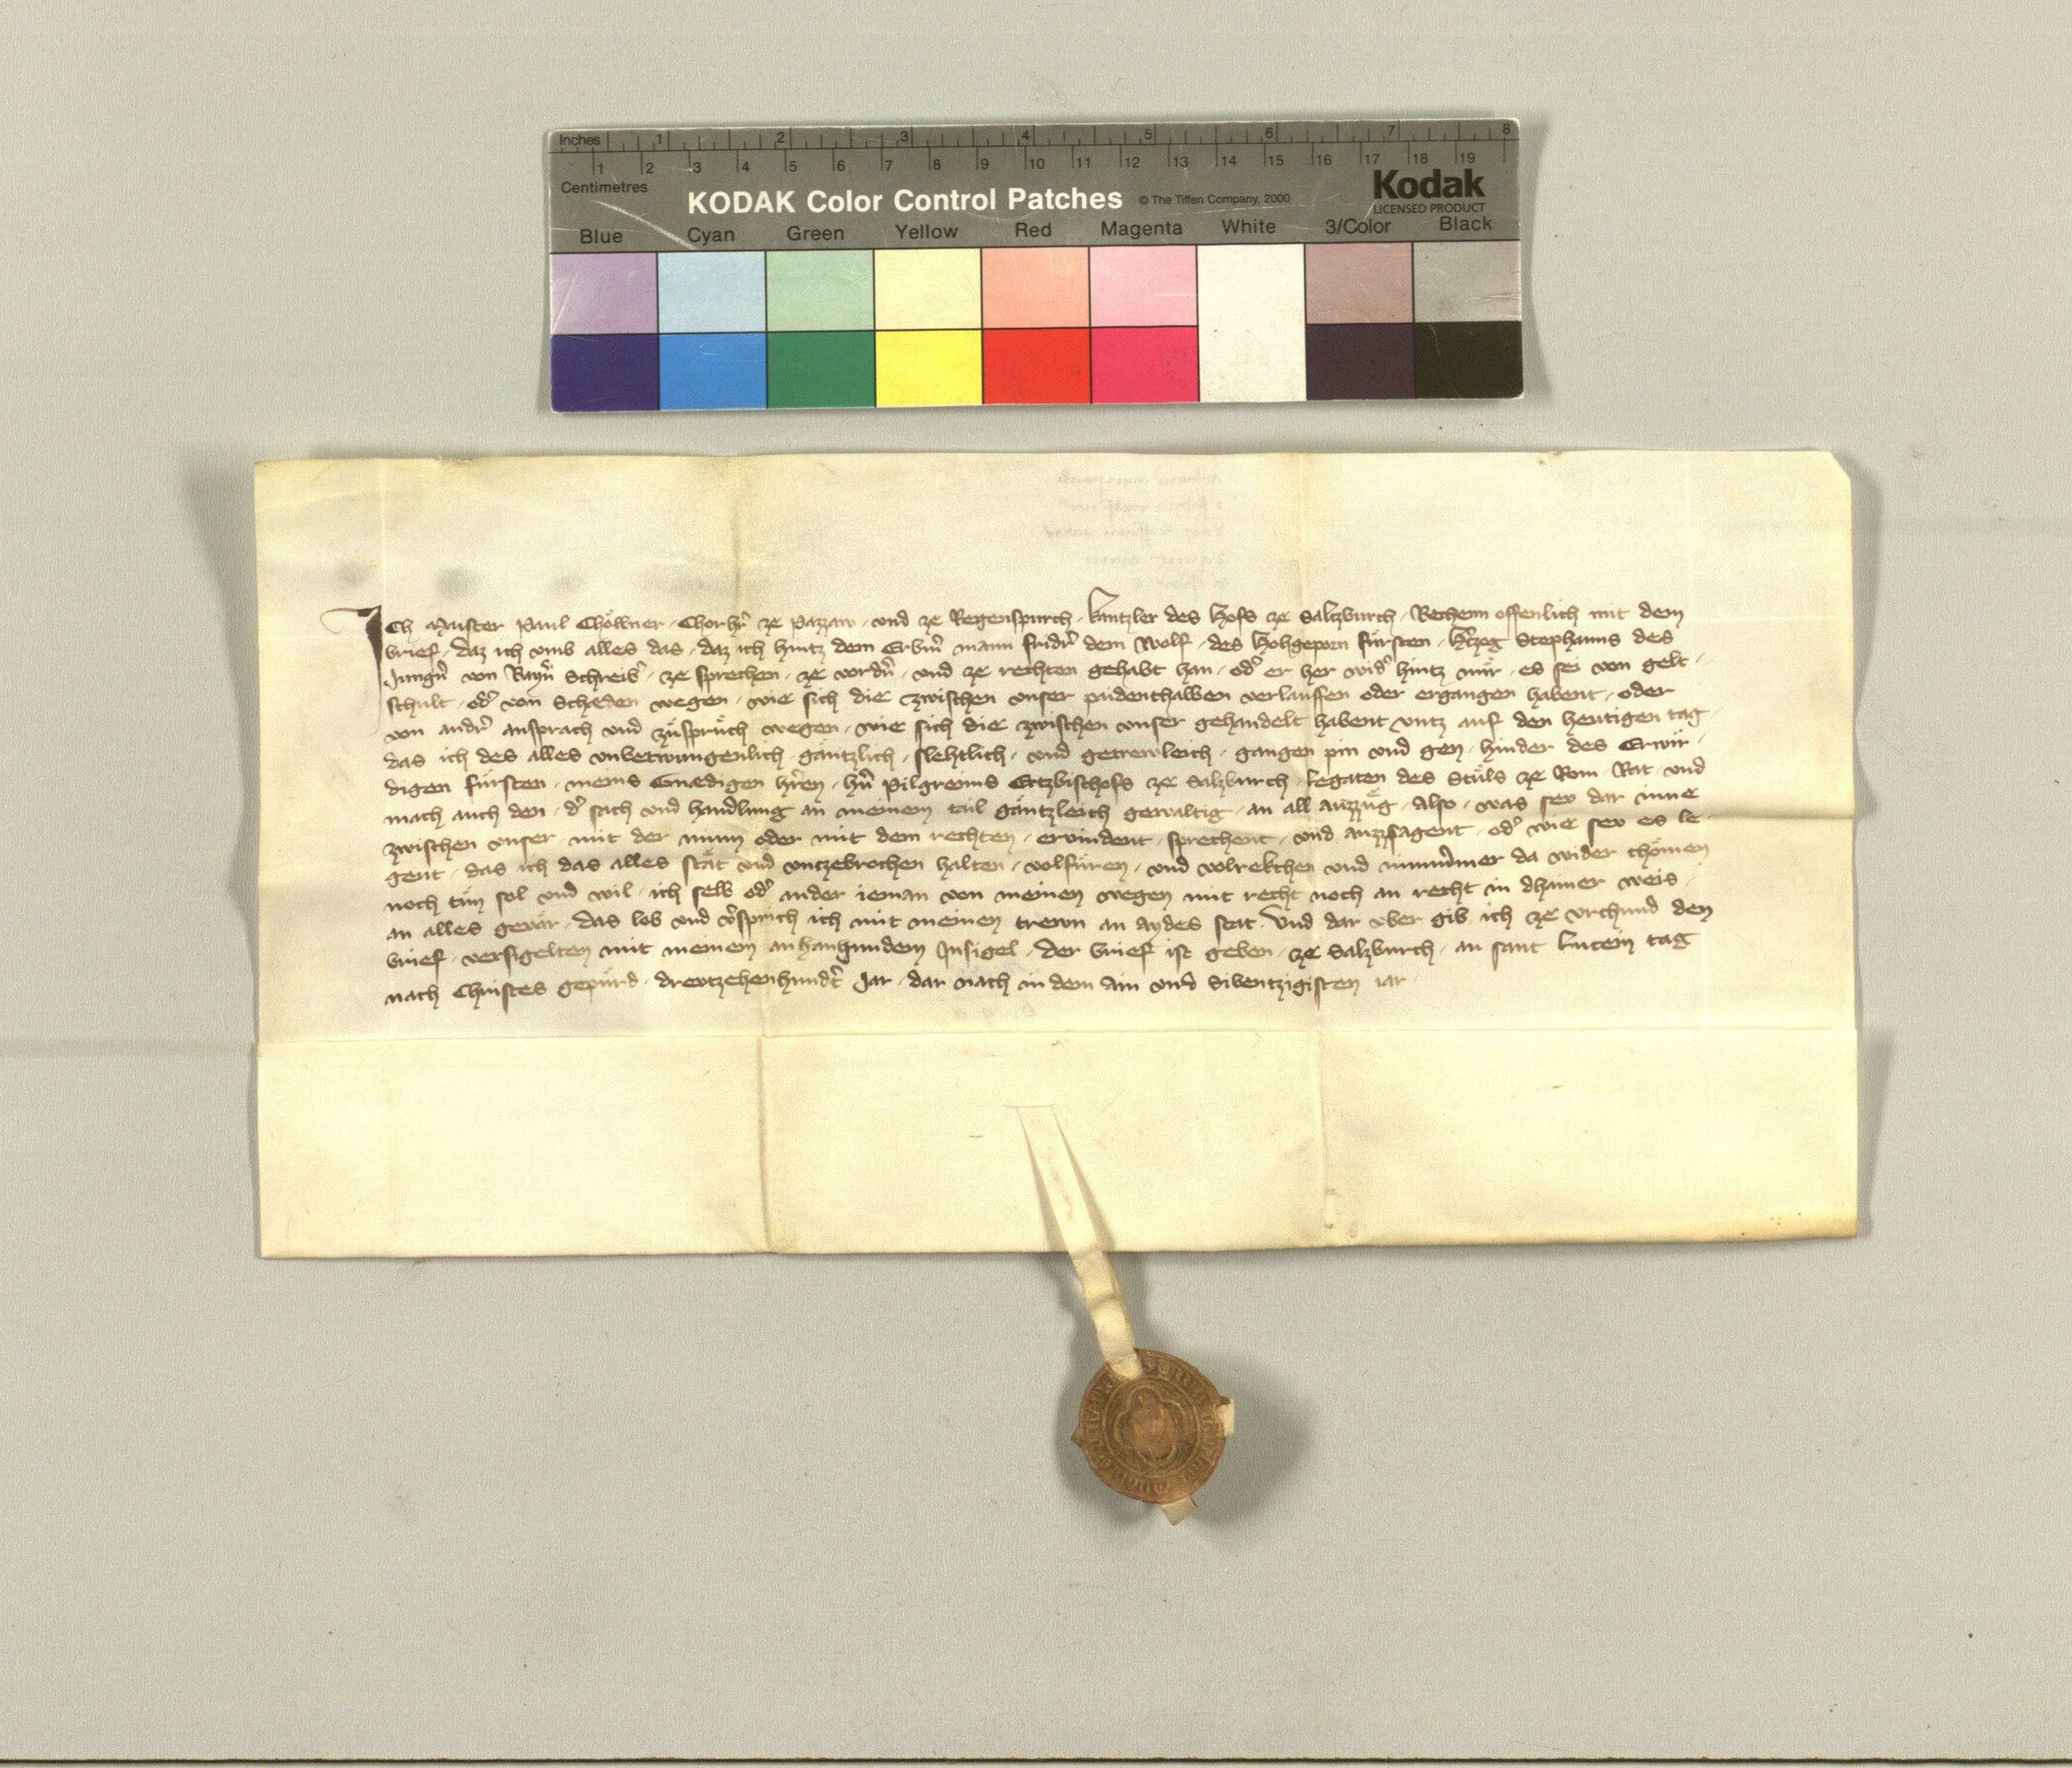 Inches 1 2 3 4 5 6 7 8
1 2 3 4 5 6 7 8 9 10 11 12 13 14 15 16 17 18 19
Centimetres
KODAK Color Control Patches © The Tiffen Company, 2000
Kodak
LICENSED PRODUCT
Blue Cyan Green Yellow Red Magenta White 3/Color Black
Ich Maister Paul Chöllner · Chorhr̄ ze Pazzaw · vnd ze Regenspurch · kantzler des Hofs ze Salzburch · Vechenn offenlich mit dem
brief · daz ich vmb alles das · daz ich hintz dem Erbm̄ mann fridr̄ dem Wolf · des Hohgeporn fürsten · Hr̄zog Stephanns des
Jungn̄ von Bayrn̄ Schreibr̄ · ze sprechen · ze vordn̄ · vnd ze rechten gehabt han · odr̄ er her widr̄ hintz mir · es sei von gelt ·
schult · odr̄ von Schaeden wegen · wie sich die zwischen vnser paidenthalben verlauffen oder ergangen habent · oder
von andr̄ ansprach vnd züsprüch wegen · wie sich die zwischen vnser gehandelt habent vntz auf den heutigen tag
das ich des alles vnbetwungenlich · gäntzlich · slehtlich · vnd getrewleich · gangen pin vnd gen · hinder des Erwir-
digen fürsten · meins Gnaedigen hr̄ren · hn̄ Pilgreims Ertzbischofs ze Salzburch · Legaten des Stüls ze Rom · Rat · vnd
mach auch den · dr̄ sach vnd handlung an meinem tail gäntzleich gewaltig · an all auzzüg · Also · was sev dar inne
zwischen vnser · mit der minn oder mit dem rechten · ervindent · sprechent · vnd auzzsagent · odr̄ wie sev es le-
gent · das ich das alles stät vnd vnczebrochen halten · volfüren · vnd volrekchen vnd nimm̄mer da wider chömen
noch tün sol vnd wil · ich selb odr̄ ander ieman von meinen wegen mit recht noch an recht in dhainer weis ·
an alles gevär · das lob vnd vr̄sprich ich mit meinen trewn an aydes stat · Vnd dar vber gib ich ze vrchund den
brief · versigelten mit meinem anhangundem Insigel · Der brief ist geben · ze Salzburch · an sant Lucein tag
nach Christes gepürd · drevtzehenhundr̄t Jar · dar nach in dem Ain vnd Sibentzigisten iar ·